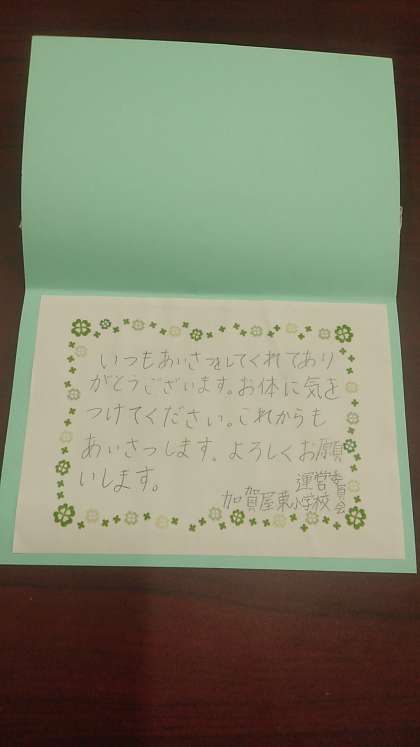 いつもあいさつをしてくれてあり
がとうございます。お体に気を
つけてください。これからも
あいさつします。よろしくお願
いします。
運営委員会
加賀屋東小学校